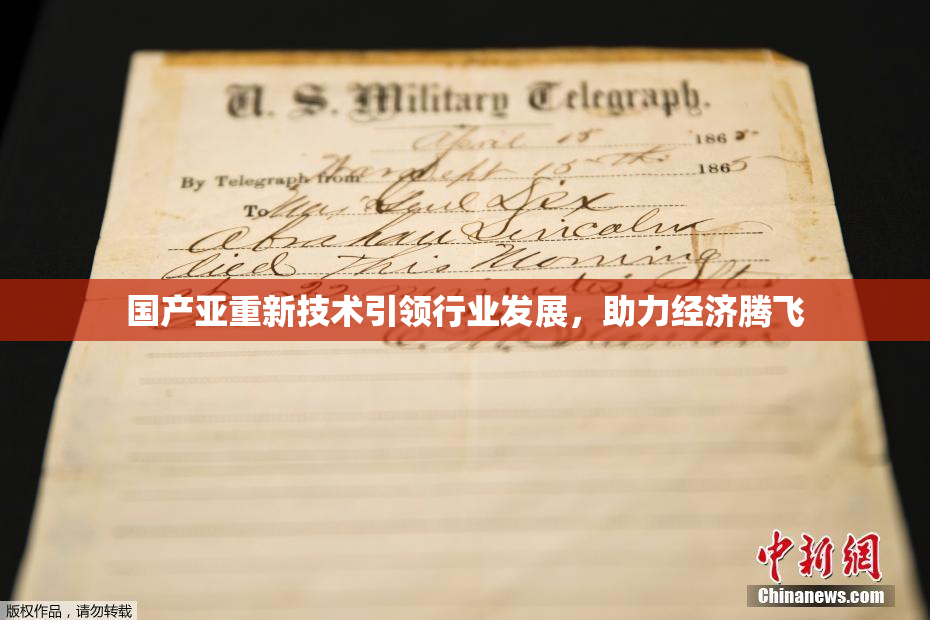 U. S. Military Telegraph.
April 15 1865
By Telegraph from War Dept 15th 1865
To Maj Genl Dix
Abraham Lincoln
died This Morning
at 22 minutes after
国产亚重新技术引领行业发展，助力经济腾飞
中新网
Chinanews.com
版权作品，请勿转载